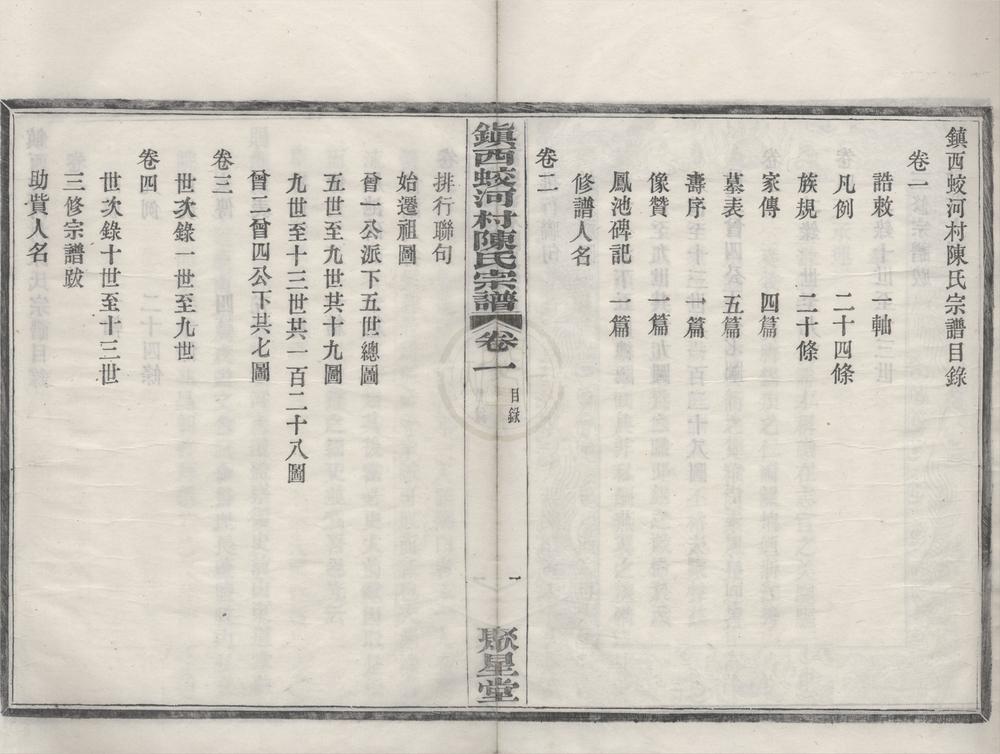 鎮西蛟河村陳氏宗譜目錄
卷一
誥敕 一軸
凡例 二十四條
族規 二十條
家傳 四篇
墓表 五篇
壽序 一篇
像贊 一篇
鳳池碑記 一篇
修譜人名
卷二
鎮西蛟河村陳氏宗譜 卷一 目錄 一 聚星堂
排行聯句
始遷祖圖
曾一公派下五世總圖
五世至九世共十九圖
九世至十三世共一百二十八圖
曾三曾四公下共七圖
卷三
世次錄一世至九世
卷四
世次錄十世至十三世
三修宗譜跋
助貲人名